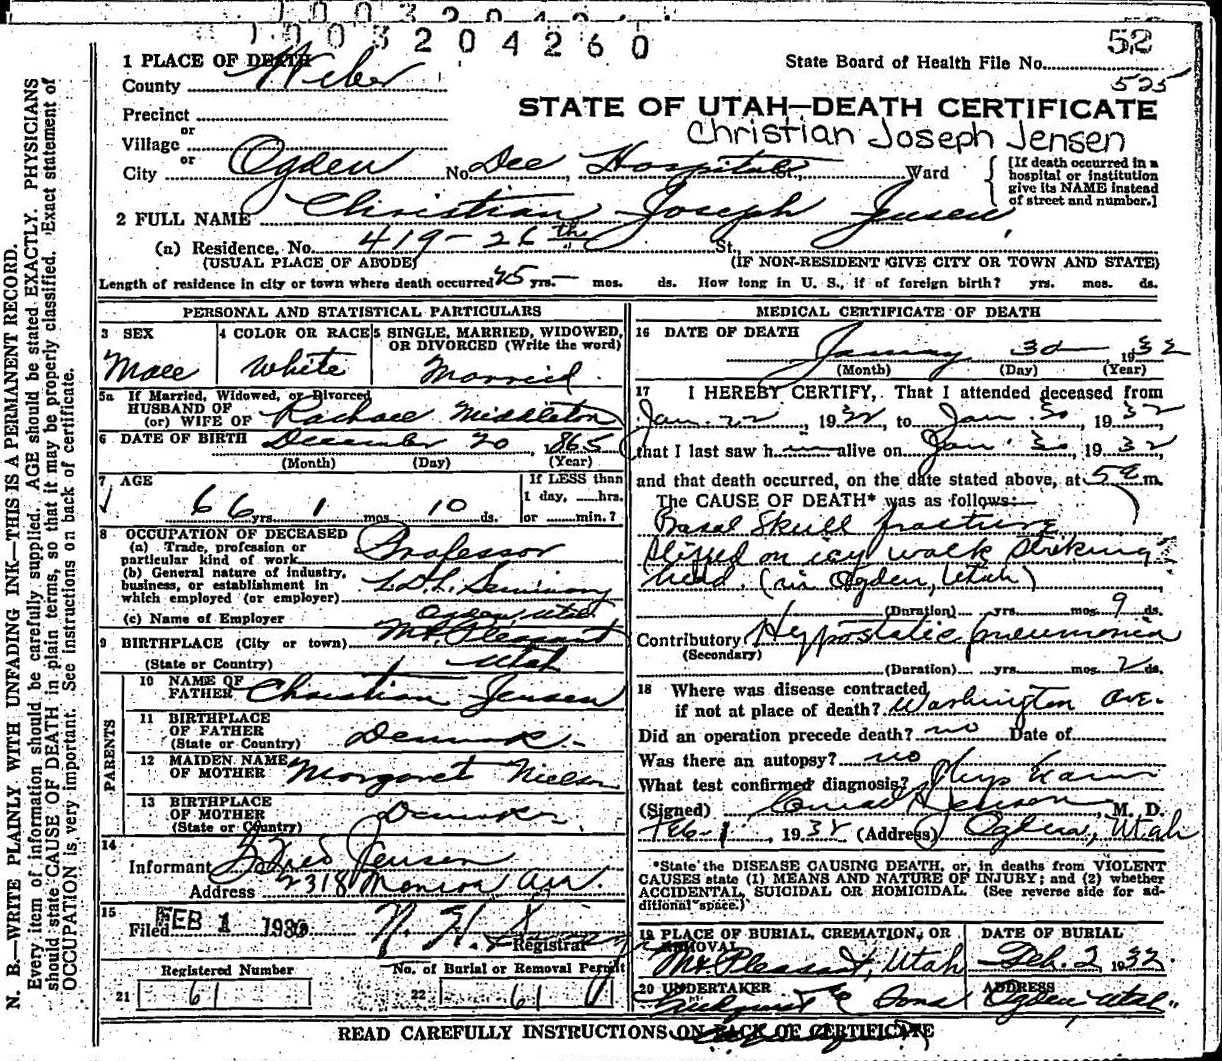 1003204260
52
1 PLACE OF DEATH
County Weber
State Board of Health File No.
525
Precinct
or
Village
or
STATE OF UTAH—DEATH CERTIFICATE
Christian Joseph Jensen
City Ogden No. Dee Hospital St., Ward
[If death occurred in a
hospital or institution
give its NAME instead
of street and number.]
2 FULL NAME Christian Joseph Jensen
(a) Residence. No. 419-26th St,
(USUAL PLACE OF ABODE) (IF NON-RESIDENT GIVE CITY OR TOWN AND STATE)
Length of residence in city or town where death occurred yrs. — mos. ds. How long in U. S., if of foreign birth? yrs. mos. ds.
PERSONAL AND STATISTICAL PARTICULARS
3 SEX
Male
4 COLOR OR RACE
White
5 SINGLE, MARRIED, WIDOWED,
OR DIVORCED (Write the word)
Married.
5a If Married, Widowed, or Divorced
HUSBAND OF
(or) WIFE OF Rachael Middleton
6 DATE OF BIRTH December 20, 1865
(Month) (Day) (Year)
7 AGE
66 yrs. 1 mos. 10 ds.
If LESS than
1 day, hrs.
or min.?
8 OCCUPATION OF DECEASED
(a) Trade, profession or
particular kind of work Professor
(b) General nature of industry,
business, or establishment in
which employed (or employer) L.D.S. Seminary
(c) Name of Employer Ogden, Utah
9 BIRTHPLACE (City or town) Mt. Pleasant
(State or Country) Utah
PARENTS
10 NAME OF
FATHER Christian Jensen
11 BIRTHPLACE
OF FATHER
(State or Country) Denmark
12 MAIDEN NAME
OF MOTHER Margaret Nielsen
13 BIRTHPLACE
OF MOTHER
(State or Country) Denmark
14
Informant Fred Jensen
Address 2318 Monroe Av.
15
Filed FEB 1 193 N. H.
Registrar
Registered Number
21 61
No. of Burial or Removal Permit
22 61
MEDICAL CERTIFICATE OF DEATH
16 DATE OF DEATH
January 30, 1932
(Month) (Day) (Year)
17 I HEREBY CERTIFY, That I attended deceased from
Jan. 22, 1932, to Jan. 30, 1932
that I last saw h alive on Jan 30, 1932
and that death occurred, on the date stated above, at 5 a m.
The CAUSE OF DEATH* was as follows:
Basal Skull fracture
slipped on icy walk striking
head. (in Ogden, Utah)
(Duration) yrs. mos. 9 ds.
Contributory Hypostatic pneumonia
(Secondary)
(Duration) yrs. mos. 2 ds.
18 Where was disease contracted
if not at place of death? Washington Ave.
Did an operation precede death? no Date of
Was there an autopsy? no
What test confirmed diagnosis? Phys Exam
(Signed) Conrad Jenson, M. D.
Feb-1, 1932 (Address) Ogden, Utah
*State the DISEASE CAUSING DEATH, or, in deaths from VIOLENT
CAUSES state (1) MEANS AND NATURE OF INJURY; and (2) whether
ACCIDENTAL, SUICIDAL OR HOMICIDAL. (See reverse side for ad-
ditional space.)
19 PLACE OF BURIAL, CREMATION, OR
REMOVAL
Mt. Pleasant, Utah
DATE OF BURIAL
Feb. 2, 1932
20 UNDERTAKER
Lindquist & Sons
ADDRESS
Ogden, Utah
READ CAREFULLY INSTRUCTIONS ON BACK OF CERTIFICATE
N. B.—WRITE PLAINLY WITH UNFADING INK—THIS IS A PERMANENT RECORD.
Every item of information should be carefully supplied. AGE should be stated EXACTLY. PHYSICIANS
should state CAUSE OF DEATH in plain terms, so that it may be properly classified. Exact statement of
OCCUPATION is very important. See instructions on back of certificate.